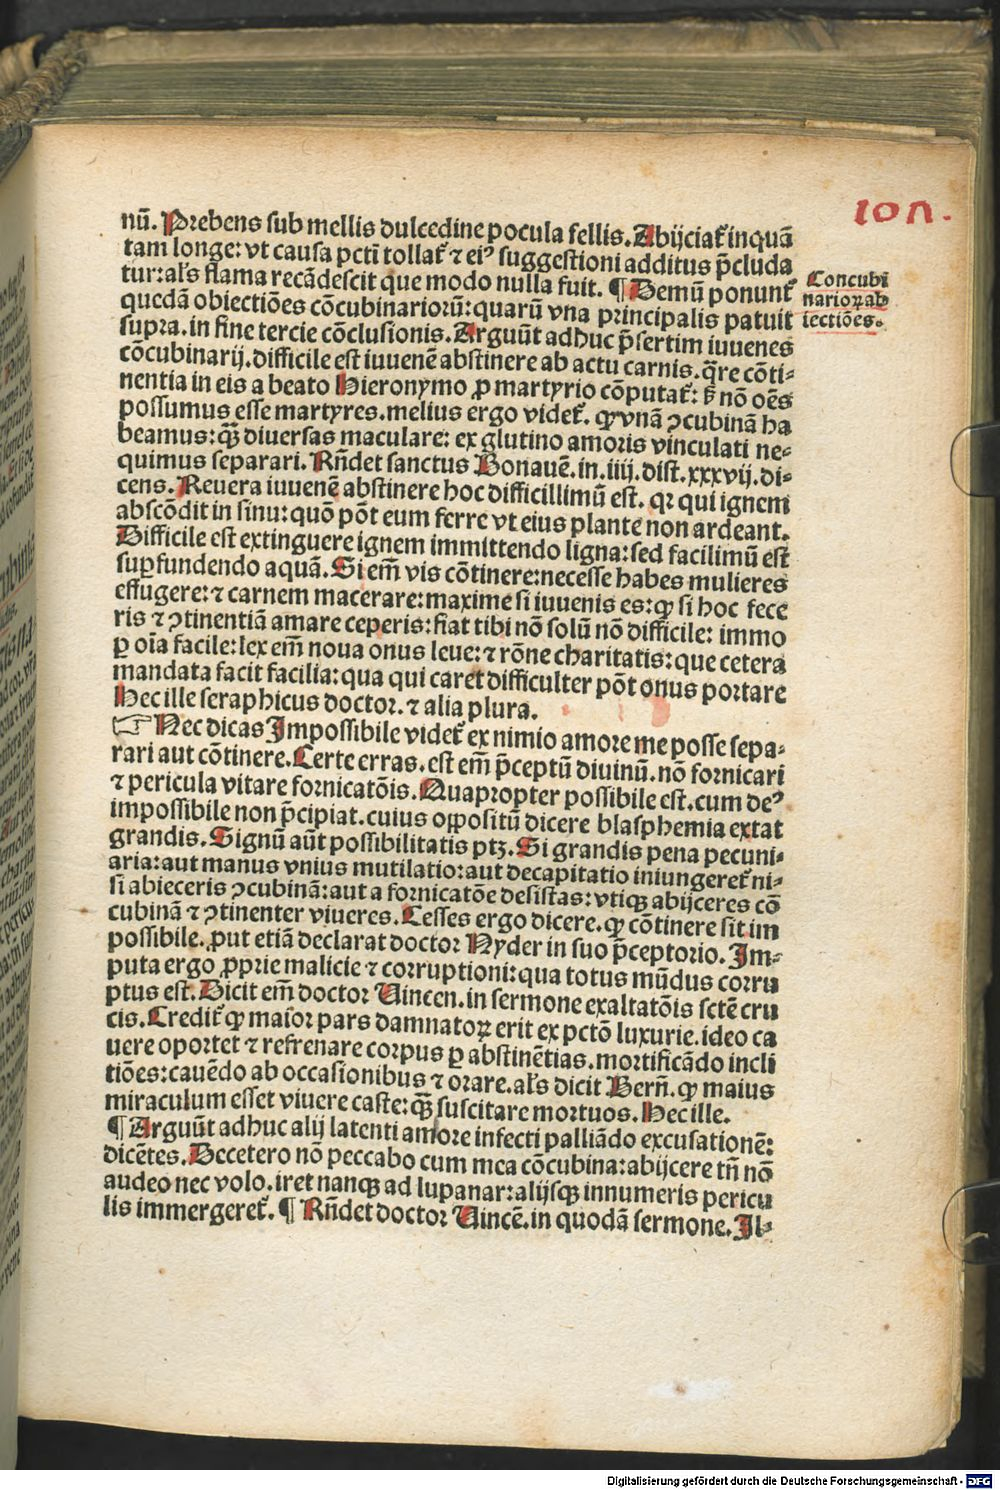 107.
nū. Prebens sub mellis dulcedine pocula fellis. Abijciat᷑ inquā
tam longe: vt causa pcti tollat᷑ ⁊ eiꝰ suggestioni additus p̄cluda
tur: al's flama recādescit que modo nulla fuit. ¶ Demū ponunt᷑
quedā obiectiōes cōcubinariorū: quarū vna principalis patuit
supra. in fine tercie cōclusionis. Arguūt adhuc p̄sertim iuuenes
cōcubinarij. difficile est iuuenē abstinere ab actu carnis. q̄re cōti-
nentia in eis a beato Hieronymo ꝓ martyrio cōputat᷑: sꝫ nō oēs
possumus esse martyres. melius ergo videt᷑. ꝙ vnā ꝯcubinā ha
beamus: qꝫ̄ diuersas maculare: ex glutino amoris vinculati ne-
quimus separari. Rn̄det sanctus Bonauē. in. iiij. dist. xxxvij. di-
cens. Reuera iuuenē abstinere hoc difficillimū est. qꝛ qui ignem
abscōdit in sinu: quō pōt eum ferre vt eius plante non ardeant.
Difficile est extinguere ignem immittendo ligna: sed facilimū est
suꝑfundendo aquā. Si em̄ vis cōtinere: necesse habes mulieres
effugere: ⁊ carnem macerare: maxime si iuuenis es: ꝙ si hoc fece
ris ⁊ ꝯtinentiā amare ceperis: fiat tibi nō solū nō difficile: immo
ꝑ oīa facile: lex em̄ noua onus leue: ⁊ rōne charitatis: que cetera
mandata facit facilia: qua qui caret difficulter pōt onus portare
Hec ille seraphicus doctor. ⁊ alia plura.
☞ Nec dicas Impossibile videt᷑ ex nimio amore me posse sepa-
rari aut cōtinere. Certe erras. est em̄ p̄ceptū diuinū. nō fornicari
⁊ pericula vitare fornicatōis. Quapropter possibile est. cum deꝰ
impossibile non p̄cipiat. cuius oppositū dicere blasphemia extat
grandis. Signū aūt possibilitatis ptꝫ. Si grandis pena pecuni-
aria: aut manus vnius mutilatio: aut decapitatio iniungeret᷑ ni-
si abieceris ꝯcubinā: aut a fornicatōe desistas: vtiqꝫ abijceres cō
cubinā ⁊ ꝯtinenter viueres. Cesses ergo dicere. ꝙ cōtinere sit im
possibile. ꝓut etiā declarat doctor Nyder in suo p̄ceptorio. Im-
puta ergo ꝓprie malicie ⁊ corruptioni: qua totus mūdus corru
ptus est. Dicit em̄ doctor Vincen. in sermone exaltatōis sctē cru
cis. Credit᷑ ꝙ maior pars damnatoꝝ erit ex pctō luxurie. ideo ca
uere oportet ⁊ refrenare corpus ꝑ abstinētias. mortificādo incli
tiōes: cauēdo ab occasionibus ⁊ orare. al's dicit Bern̄. ꝙ maius
miraculum esset viuere caste: qꝫ̄ suscitare mortuos. Hec ille.
¶ Arguūt adhuc alij latenti amore infecti palliādo excusationē:
dicētes. Decetero nō peccabo cum mea cōcubina: abijcere tn̄ nō
audeo nec volo. iret nanqꝫ ad lupanar: alijsqꝫ innumeris pericu
lis immergeret᷑. ¶ Rn̄det doctor Vincē. in quodā sermone. Il-
Concubi
narioꝝ ob
iectiōes.
Digitalisierung gefördert durch die Deutsche Forschungsgemeinschaft - DFG